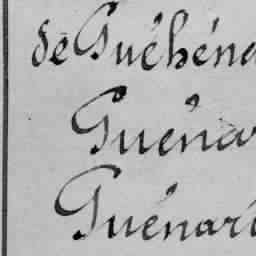 de Guéhéna
Guénar
Guénari